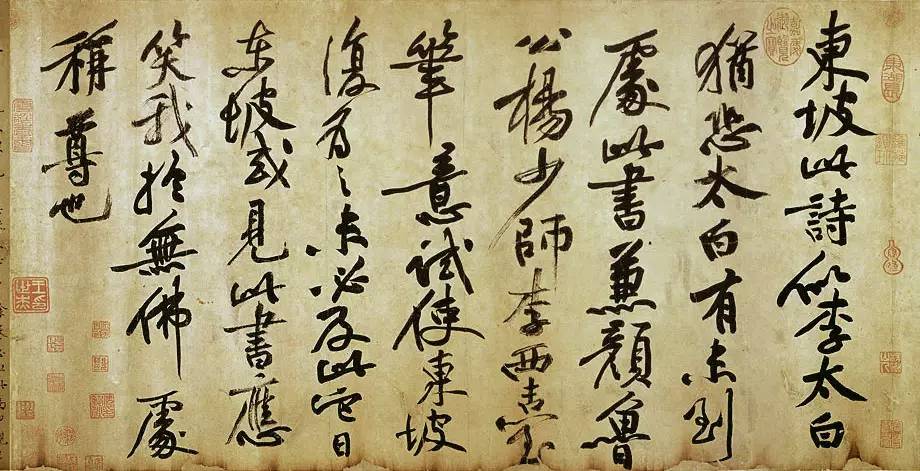 東坡此詩似李太白
猶恐太白有未到
處此書兼顏魯
公楊少師李西臺
筆意試使東坡
復為之未必及此它日
東坡或見此書應
笑我於無佛處
稱尊也